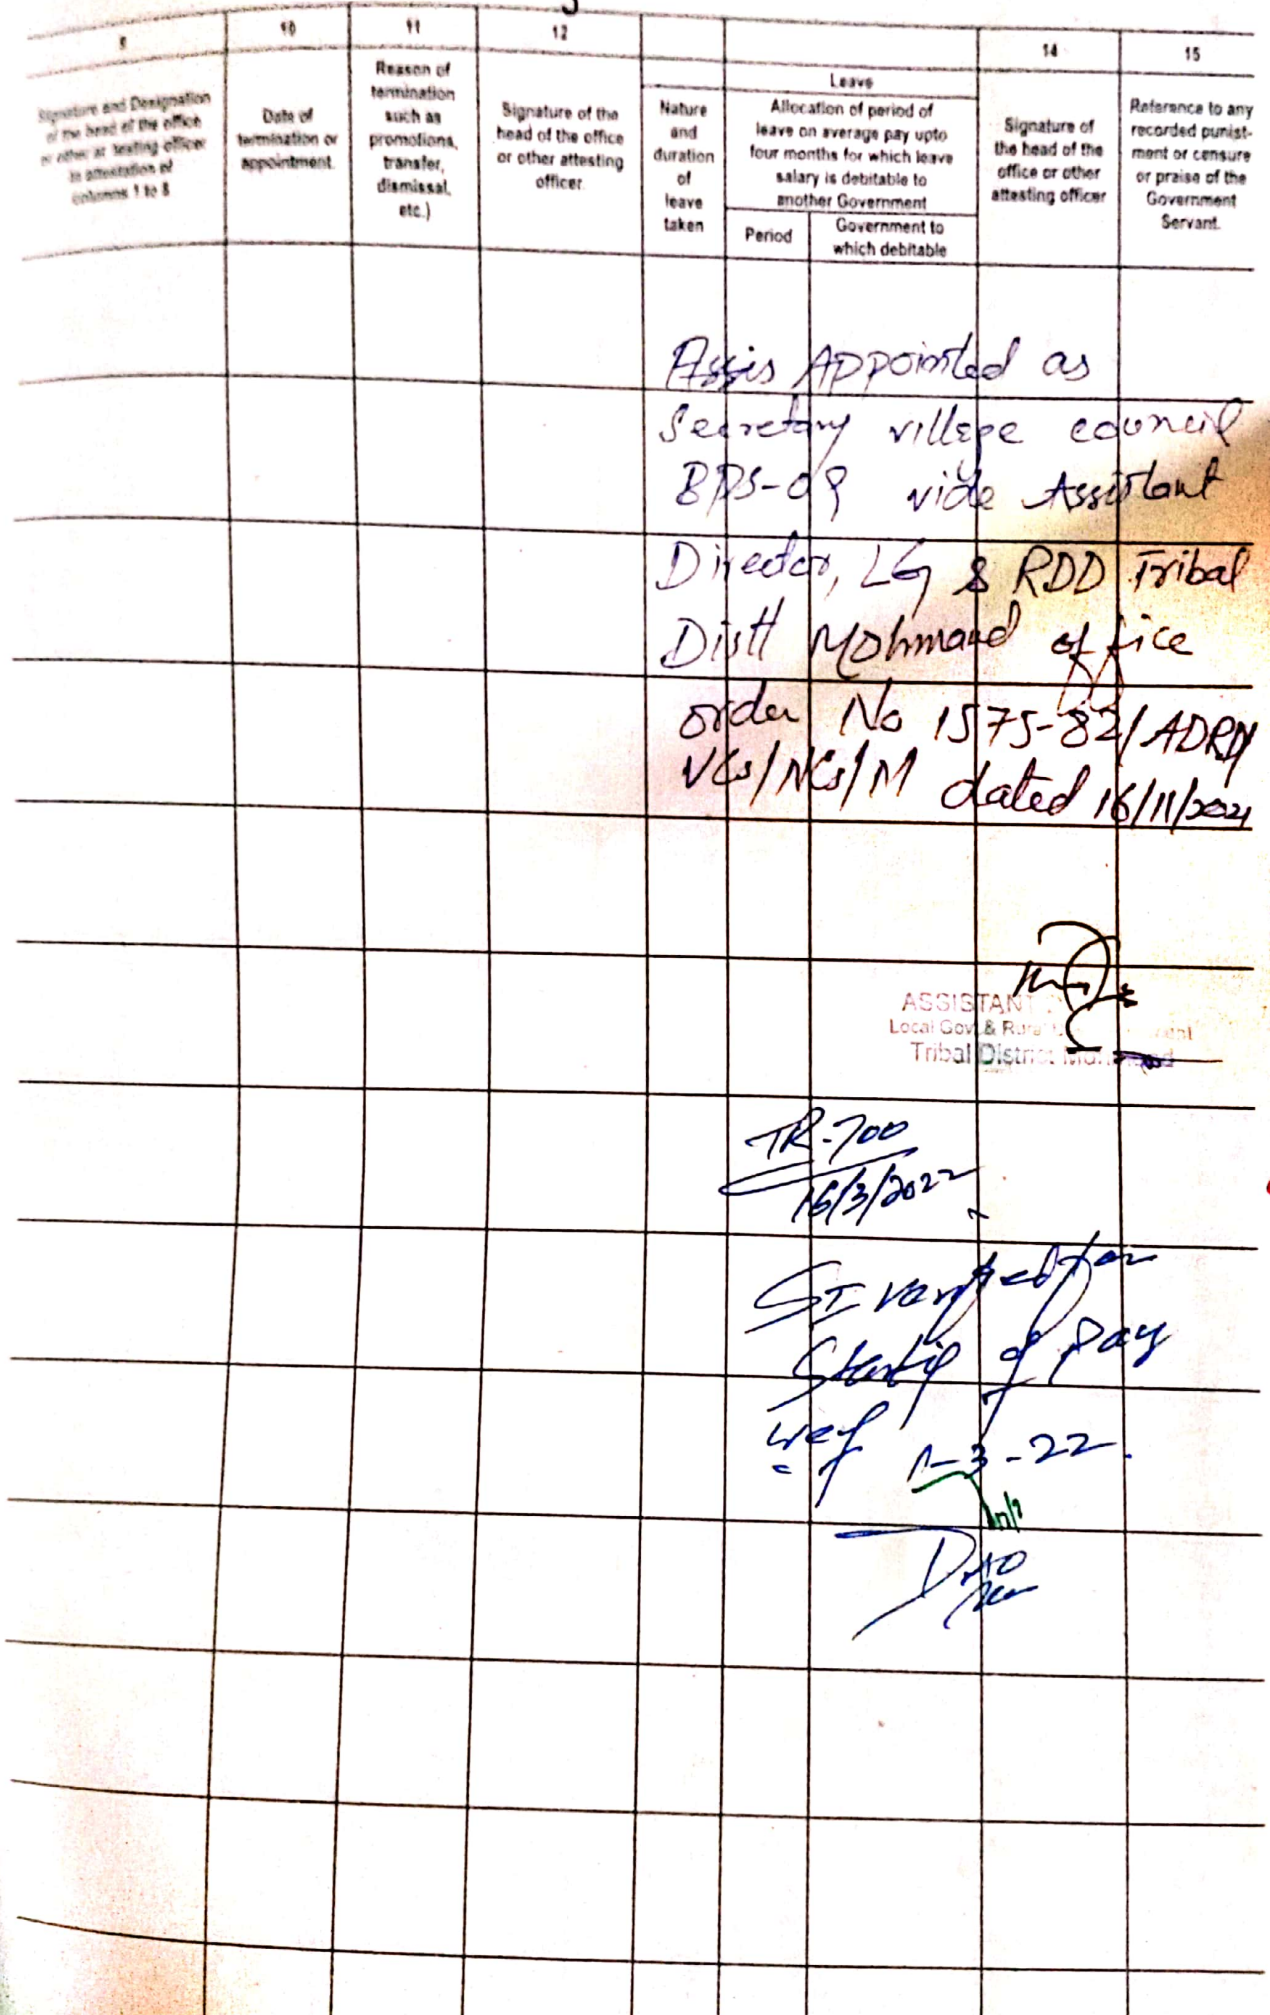 9 10 11 12 14 15
Signature and Designation
of the head of the office
or other at testing officer
in attestation of
columns 1 to 8
Date of
termination or
appointment.
Reason of
termination
such as
promotions,
transfer,
dismissal,
etc.)
Signature of the
head of the office
or other attesting
officer.
Leave
Nature
and
duration
of
leave
taken
Allocation of period of
leave on average pay upto
four months for which leave
salary is debitable to
another Government
Period
Government to
which debitable
Signature of
the head of the
office or other
attesting officer
Reference to any
recorded punist-
ment or censure
or praise of the
Government
Servant.
Assis Appointed as
Secretary village council
BPS-09 vide Assistant
Director, LG & RDD Tribal
Distt Mohmand office
order No 1575-82/ADRD/
VCs/NCs/M dated 16/11/2021
ASSISTANT
Local Gov. & Rural
Tribal District
TR-700
16/3/2022
verified for
Starting of Pay
wef 1-3-22.
DAO